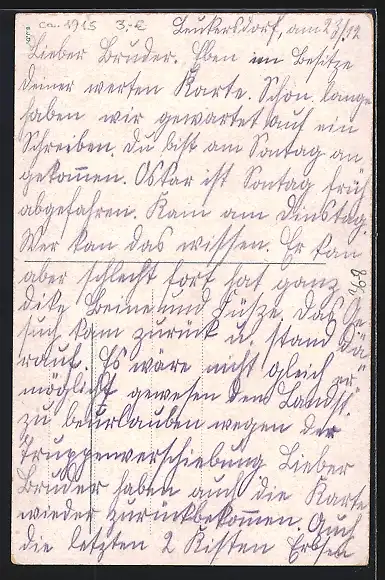 ca. 1915 3,-€
Leukersdorf, am 23/12
Lieber Bruder. Eben im Besitze
deiner werten Karte. Schon lange
haben wir gewartet auf ein
Schreiben. Du bist am Sontag an
gekommen. Oskar ist Sontag früh
abgefahren. Kam am Dinstag.
Wer kan das wissen. Er kan
aber schlecht fort hat ganz
dike Beine und Füsze. Das Ge
such kam zurück u. stand da
rauf. Es wäre nicht gleich er"
möglicht gewesen dem Landst.
zu beurlauben wegen der
Truppenverschiebung Lieber
Bruder haben auch die Karte
wieder zurückbekommen. Auch
die letzten 2 Kisten